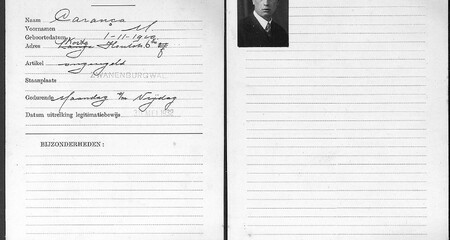 Naam Caransa
Voornamen M.
Geboortedatum 1-11-19
Adres Korte Houtstr. 6
Artikel ongeregeld
Standplaats ZWANENBURGWAL
Gedurende Maandag t/m Vrijdag
Datum uitreiking legitimatiebewijs
BIJZONDERHEDEN: